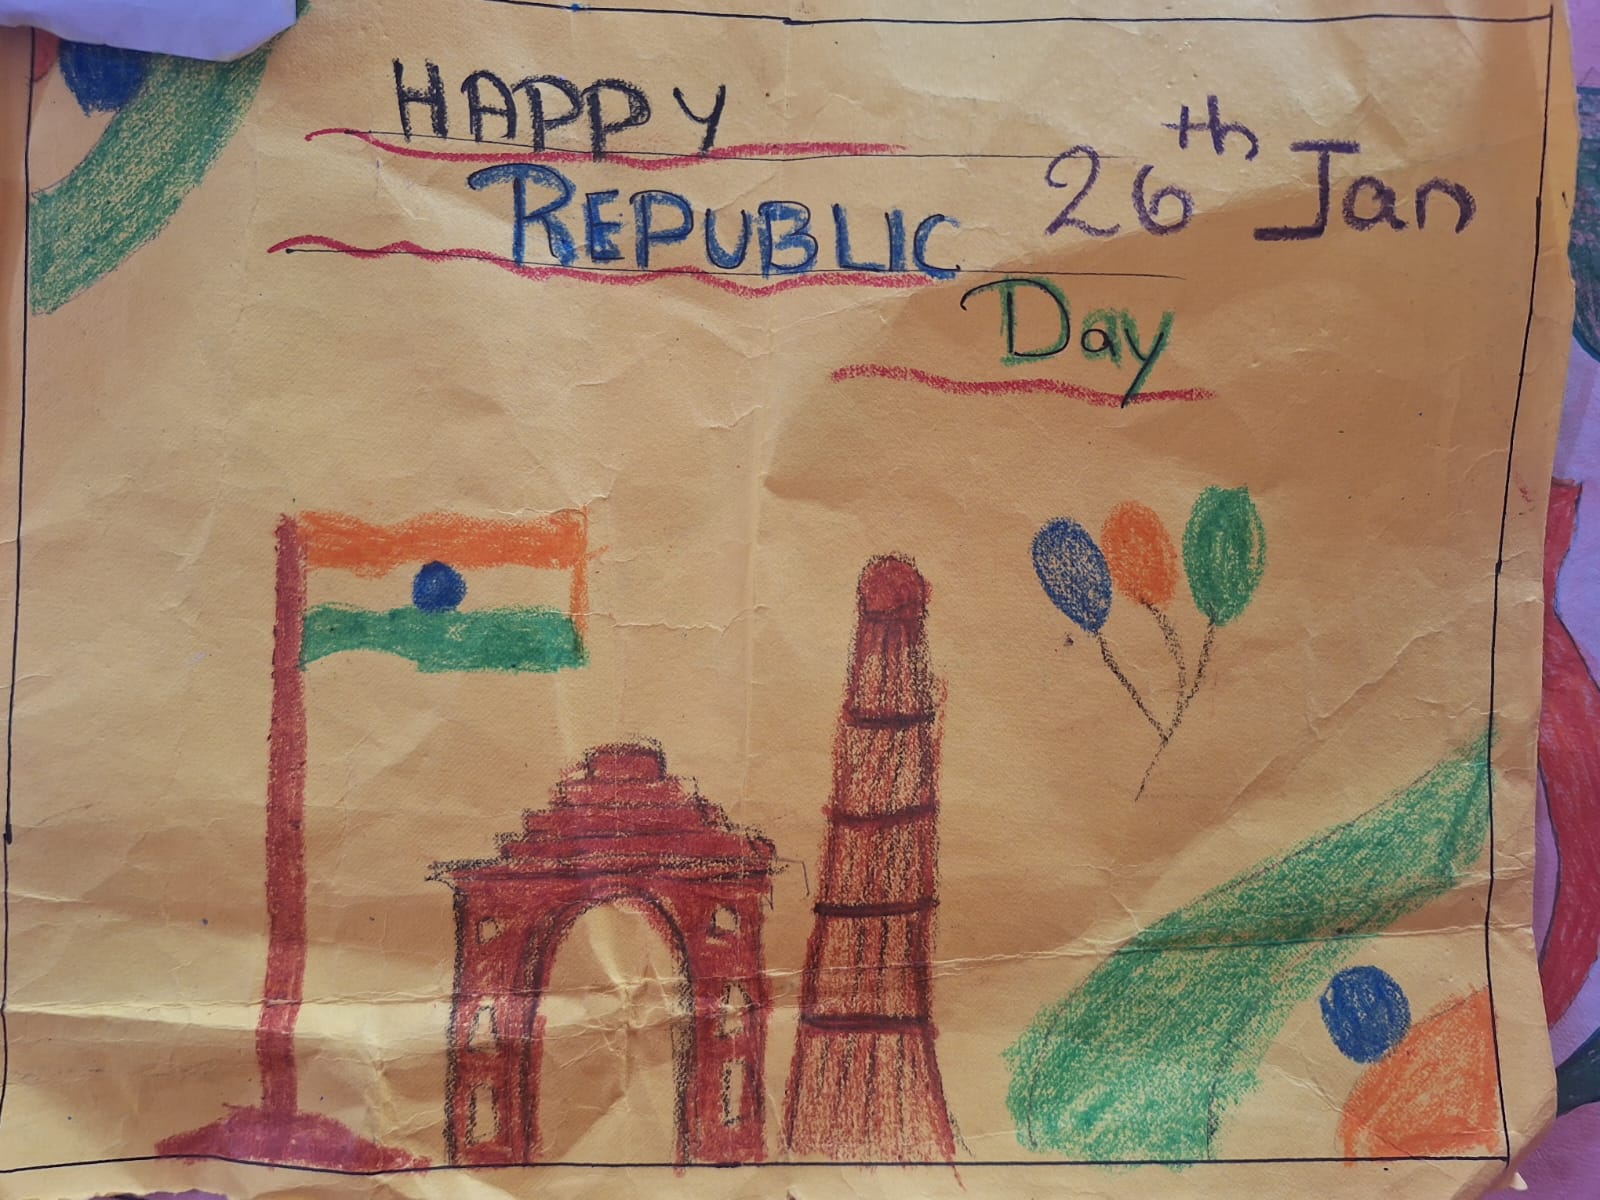 HAPPY
REPUBLIC
Day
26th Jan